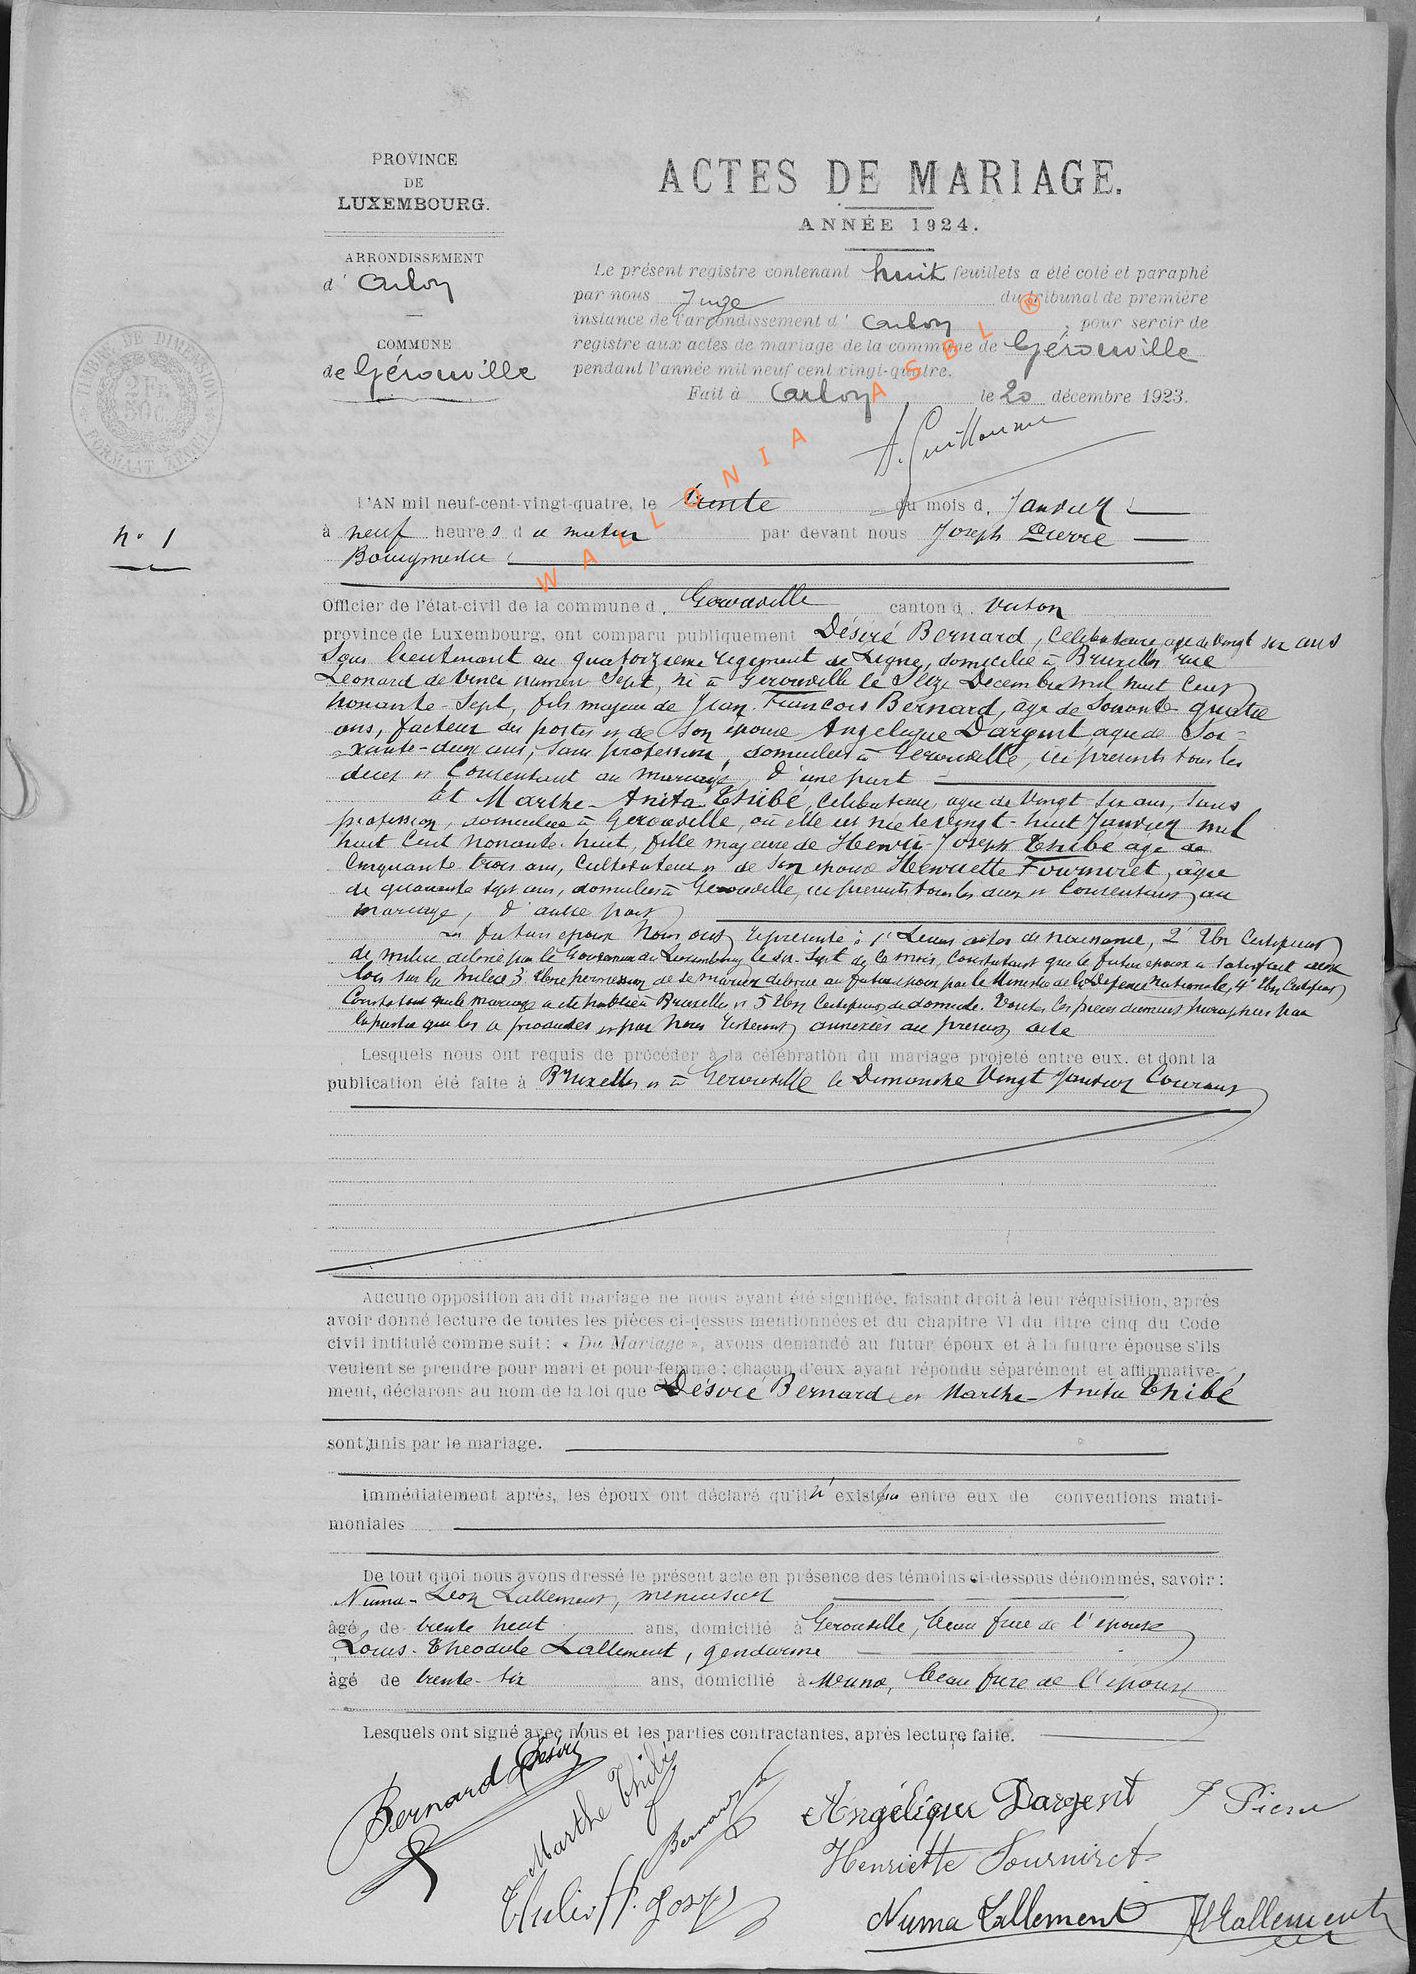 PROVINCE
DE
LUXEMBOURG.
ARRONDISSEMENT
d' Arlon
COMMUNE
de Gérouville
TIMBRE DE DIMENSION
2 FR
50C
ACTES DE MARIAGE.
ANNÉE 1924.
Le présent registre contenant huit feuillets a été coté et paraphé
par nous Juge du tribunal de première
instance de l'arrondissement d' Arlon, pour servir de
registre aux actes de mariage de la commune de Gérouville
pendant l'année mil neuf cent vingt-quatre.
Fait à Arlon le 20 décembre 1923.
A. Guillaume
WALLONIA ASBL ®
N° 1
L'AN mil neuf-cent-vingt-quatre, le trente du mois d. Janvier
à neuf heures du matin par devant nous Joseph Pierre
Bourgmestre
Officier de l'état-civil de la commune d. Gerouville canton d. Virton
province de Luxembourg, ont comparu publiquement Désiré Bernard, célibataire, age de vingt six ans
Sous lieutenant au quatorzieme regiment de Ligne, domicilié à Bruxelles rue
Leonard de Vinci numero Sept, né à Gerouville le Seize Decembre mil huit cent
nonante-Sept, fils majeur de Jean-Francois Bernard, age de soixante quatre
ans, facteur des postes et de son épouse Angelique Dargent agee de Soi-
xante-deux ans, sans profession, domicilies à Gerouville, ici presents tous les
deux et Consentant au mariage, d'une part
et Marthe-Anita Thibé, Celibataire, agee de Vingt six ans, sans
profession, domiciliee à Gerouville, où elle est née le vingt-huit Janvier mil
huit Cent nonante-huit, fille majeure de Henri-Joseph Thibé age de
Cinquante trois ans, Cultivateur et de son epouse Henriette Fourniret, agée
de quarante sept ans, domicilies à Gerouville, ici presents tous les deux et Consentant au
mariage, d'autre part
Les futurs epoux Nous ont representé: 1° Leurs actes de naissance, 2° Un Certificat
de milice délivré par le Gouverneur du Luxembourg le Sept de Ce mois, Constatant que le futur epoux a satisfait aux
lois sur la milice 3° Une permission de se marier delivrée au futur epoux par le Ministre de la Défense Nationale, 4° Un Certificat
Constatant que le mariage a été publié à Bruxelles et 5° Un Certificat de domicile. Toutes Ces pieces dument paraphees par
la partie qui les a produites et par Nous resteront annexées au présent acte
Lesquels nous ont requis de procéder à la célébration du mariage projeté entre eux, et dont la
publication été faite à Bruxelles et à Gerouville le Dimanche Vingt Janvier Courant
Aucune opposition au dit mariage ne nous ayant été signifiée, faisant droit à leur réquisition, après
avoir donné lecture de toutes les pièces ci-dessus mentionnées et du chapitre VI du titre cinq du Code
civil intitulé comme suit : « Du Mariage », avons demandé au futur époux et à la future épouse s'ils
veulent se prendre pour mari et pour femme : chacun d'eux ayant répondu séparément et affirmative-
ment, déclarons au nom de la loi que Désiré Bernard et Marthe-Anita Thibé
sont unis par le mariage.
Immédiatement après, les époux ont déclaré qu'il n'existe pas entre eux de conventions matri-
moniales
De tout quoi nous avons dressé le présent acte en présence des témoins ci-dessous dénommés, savoir :
Numa-Leon Lallement, menuisier
âgé de trente huit ans, domicilié à Gerouville, beau frere de l'epouse
Louis-Theodule Lallement, gendarme
âgé de trente-six ans, domicilié à Muno, beau frere de l'epouse
Lesquels ont signé avec nous et les parties contractantes, après lecture faite.
Bernard Désiré
Marthe Thibé
Bernard
Angélique Dargent
J Pierre
Henriette Fourniret
Numa Lallement
Lallement